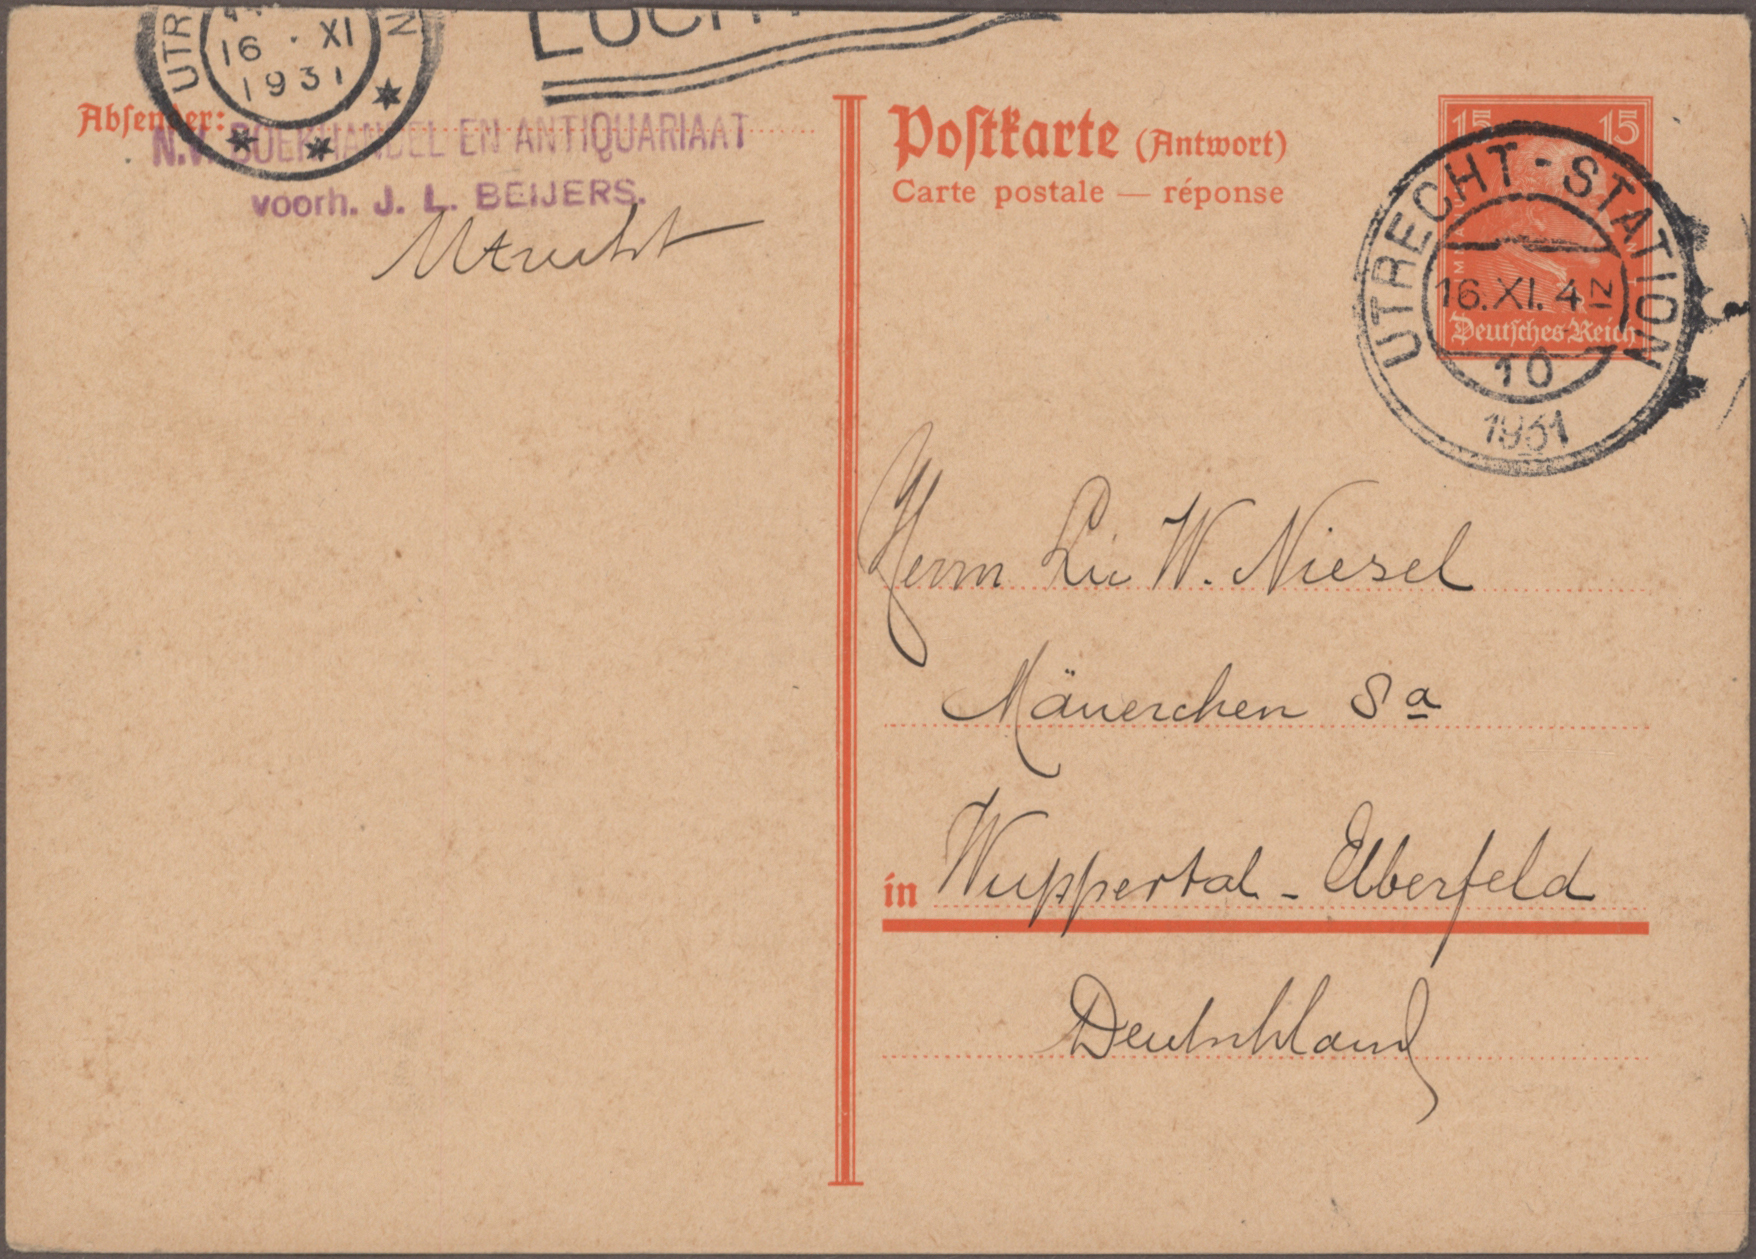 UTR N
16 · XI
1931
LUCH
Absender:
N.V. BOEKHANDEL EN ANTIQUARIAAT
voorh. J. L. BEIJERS.
Utrecht
Poſtkarte (Antwort)
Carte postale — réponse
15 15
Deutſches Reich
UTRECHT-STATION
16.XI. 4 N
10
1931
Herrn Lic W. Niesel
Mäuerchen 8a
in Wuppertal - Elberfeld
Deutschland